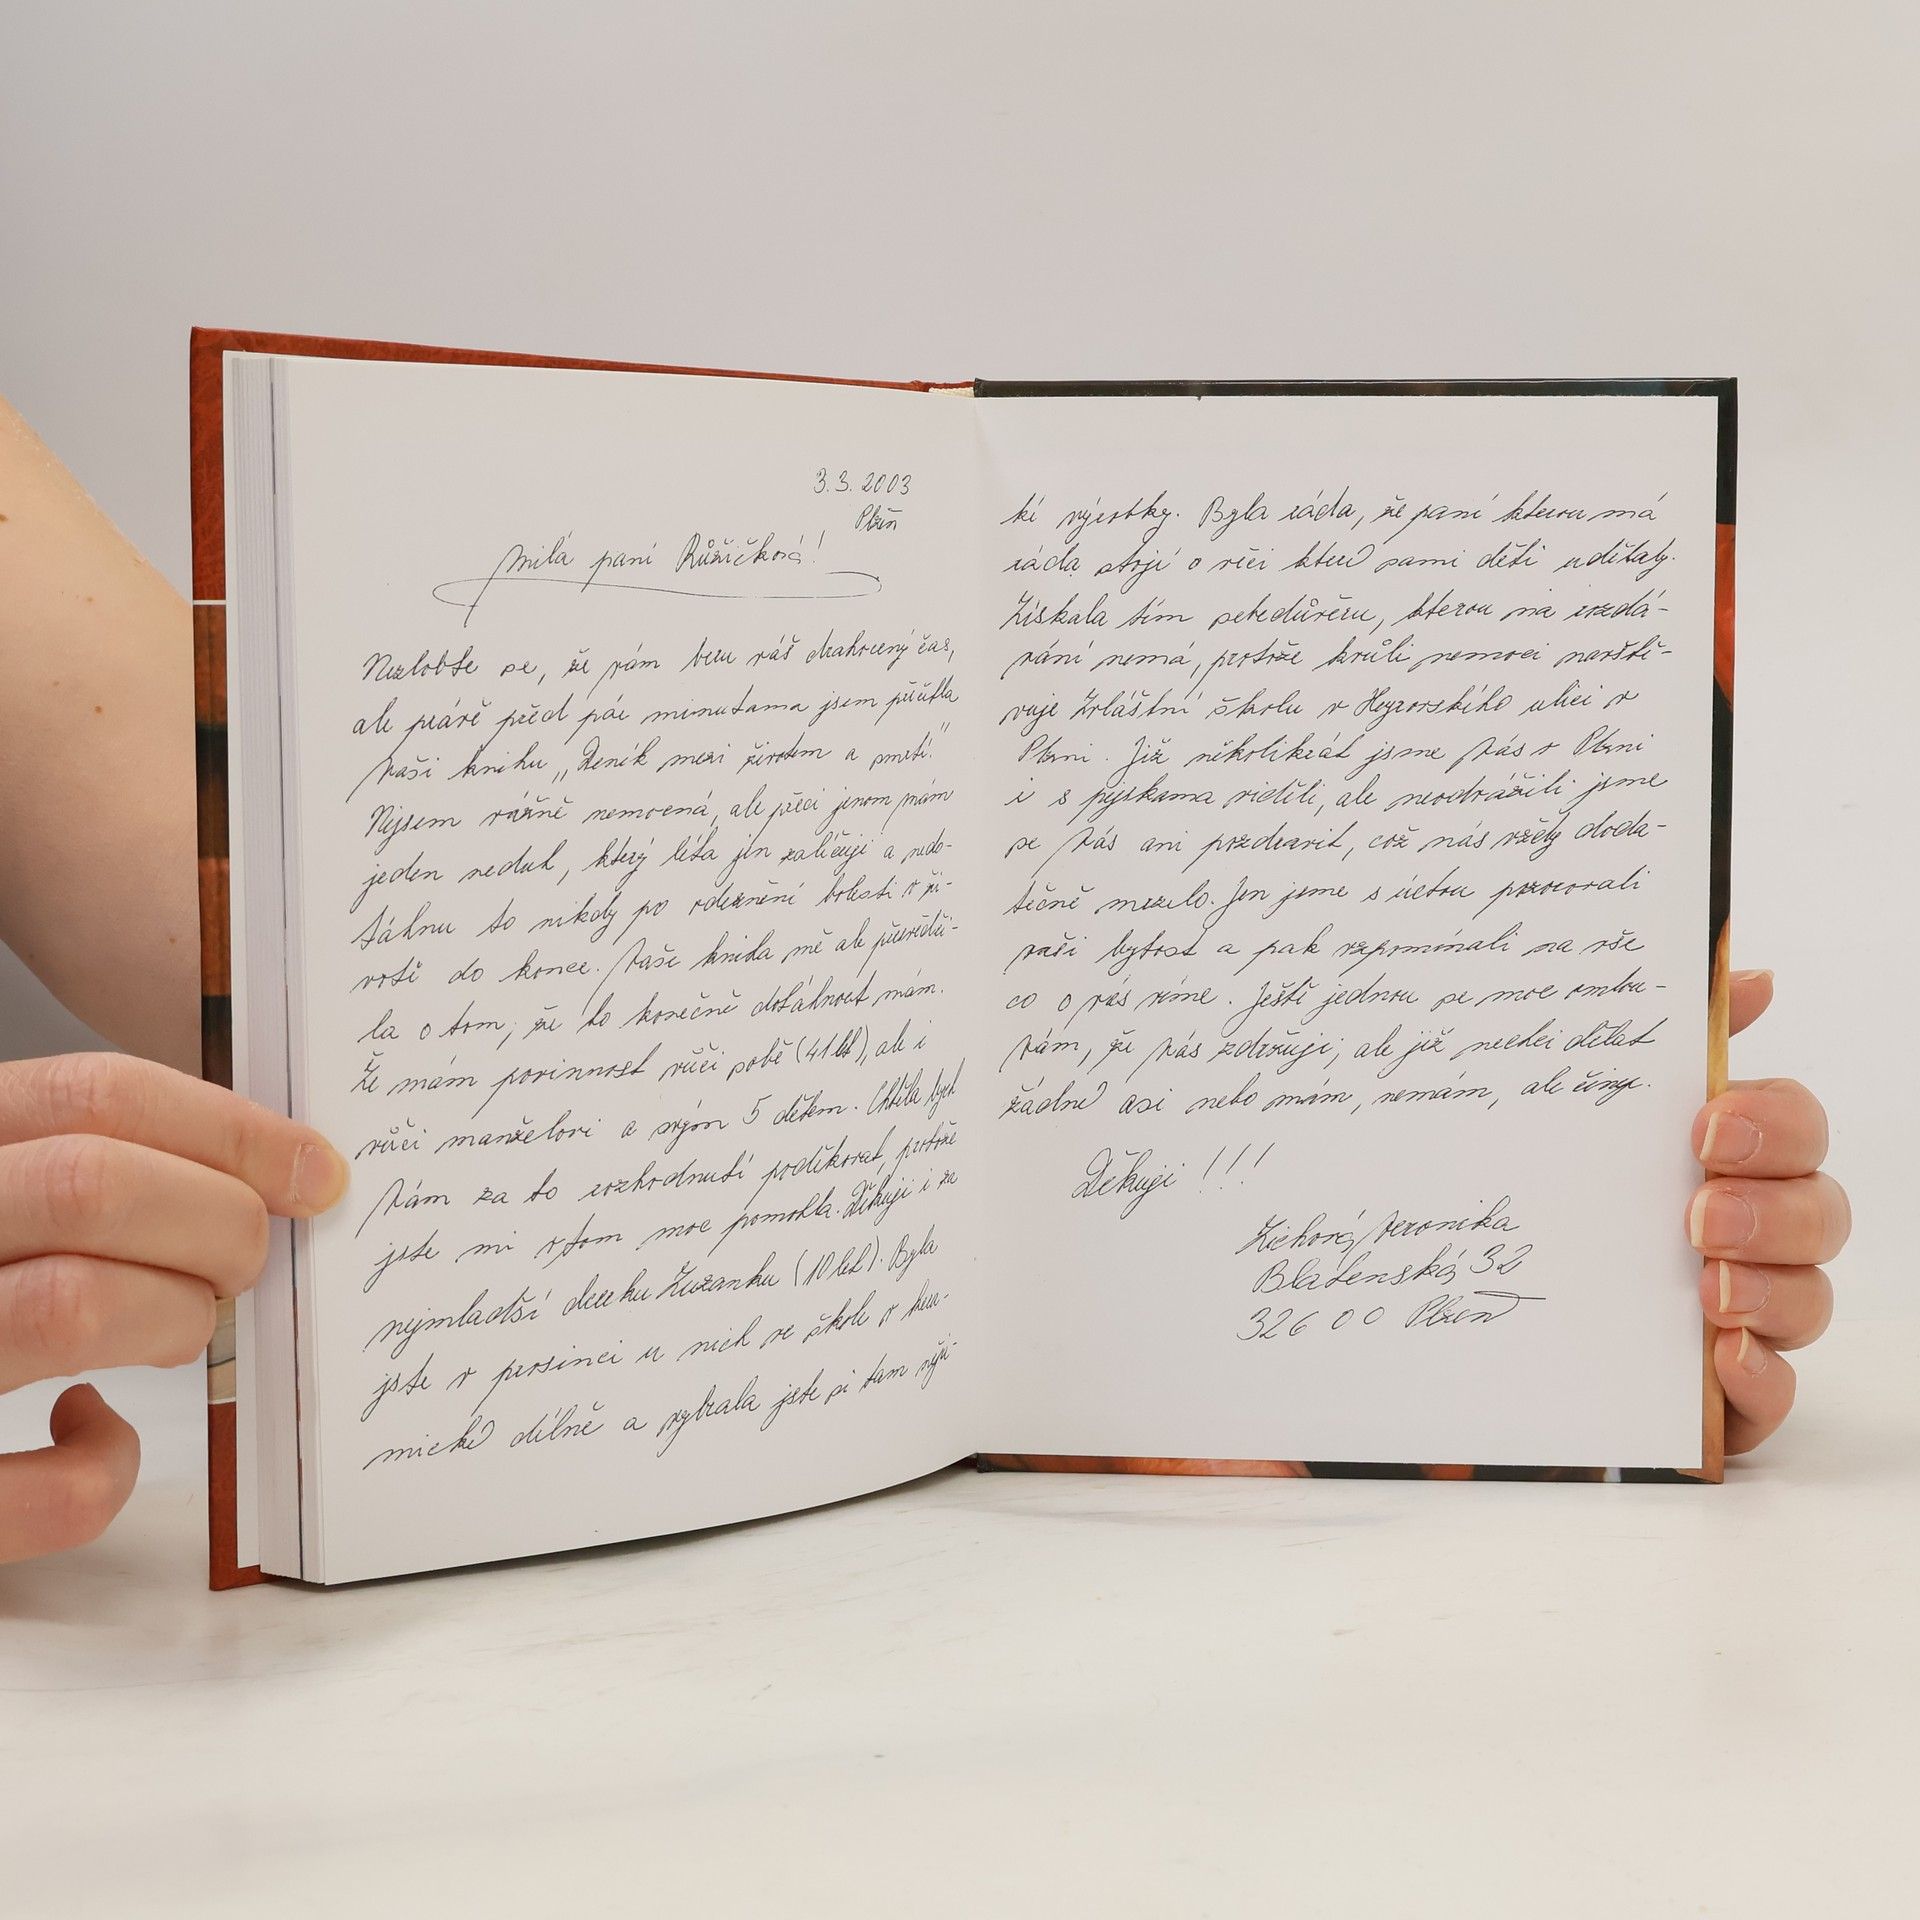 3.3. 2003
Plzeň
Milá paní Růžičková!
Nezlobte se, že vám beru váš drahocený čas,
ale právě před pár minutama jsem přečetla
Vaši knihu „Deník mezi životem a smrtí."
Nejsem vážně nemocná, ale přeci jenom mám
jeden neduh, který léta jen zaléčuji a nedo-
táhnu to nikdy po odeznění bolesti v ži-
votě do konce. Vaše kniha mě ale přesvědči-
la o tom, že to konečně dotáhnout mám.
Že mám povinnost vůči sobě (41 let), ale i
vůči manželovi a svým 5 dětem. Chtěla bych
Vám za to rozhodnutí poděkovat, protože
jste mi v tom moc pomohla. Děkuji i za
nejmladší dcerku Zuzanku (10 let). Byla
jste v prosinci u nich ve škole v kera-
mické dílně a vybrala jste si tam něja-
ké výrobky. Byla ráda, že paní kterou má
ráda stojí o věci které sami děti udělaly.
Získala tím sebedůvěru, kterou na rozdá-
vání nemá, protože kvůli nemoci navště-
vuje Zvláštní školu v Heyrovského ulici v
Plzni. Již několikrát jsme Vás v Plzni
i s pejskama viděli, ale neodvážili jsme
se Vás ani pozdravit, což nás vždy doda-
tečně mrzelo. Jen jsme s úctou pozorovali
vaši bytost a pak vzpomínali na vše
co o vás víme. Ještě jednou se moc omlou-
vám, že Vás zdržuji, ale již nechci dělat
žádné asi nebo mám, nemám, ale činy.
Děkuji !!!
Zichová Veronika
Blatenská 32
326 00 Plzeň